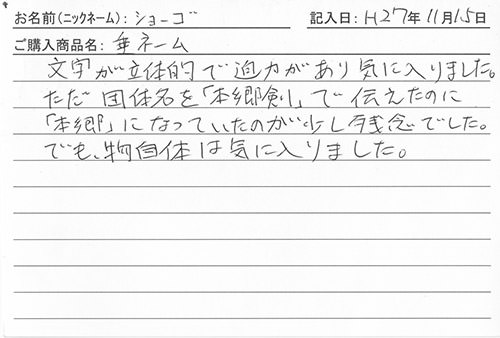 お名前(ニックネーム):ショーゴ 記入日:H27年11月15日
ご購入商品名:垂ネーム
文字が立体的で迫力があり気に入りました。
ただ団体名を「本郷剣」で伝えたのに
「本郷」になっていたのが少し残念でした。
でも、物自体は気に入りました。